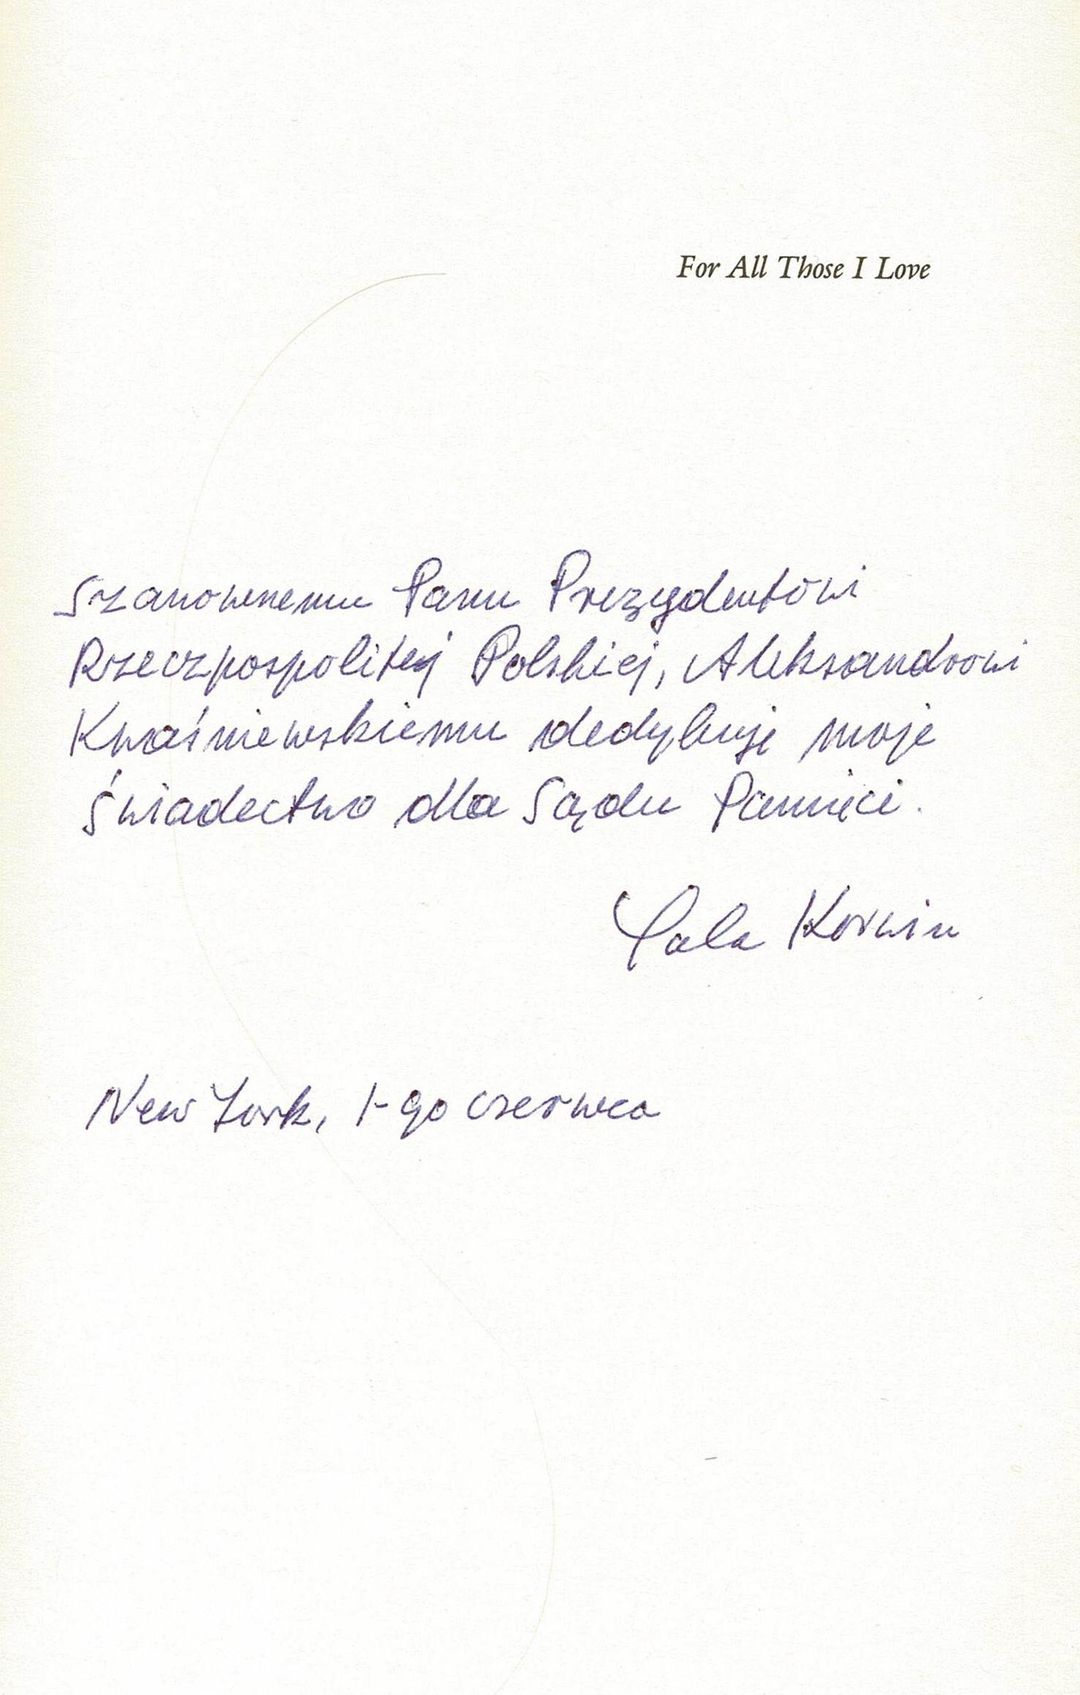 For All Those I Love
Szanownemu Panu Prezydentowi
Rzeczpospolitej Polskiej, Aleksandrowi
Kwaśniewskiemu dedykuję moje
świadectwo dla Sądu Pamięci.
Yala Korwin
New York, 1-go czerwca